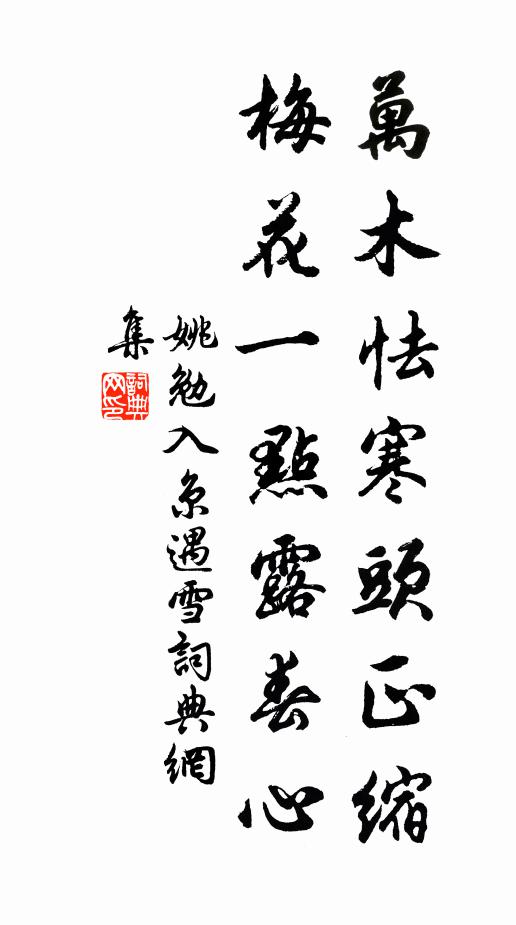 萬木怯寒頭正縮
梅花一點露春心
姚勉入京遇雪詞典網
集
詞典
網印